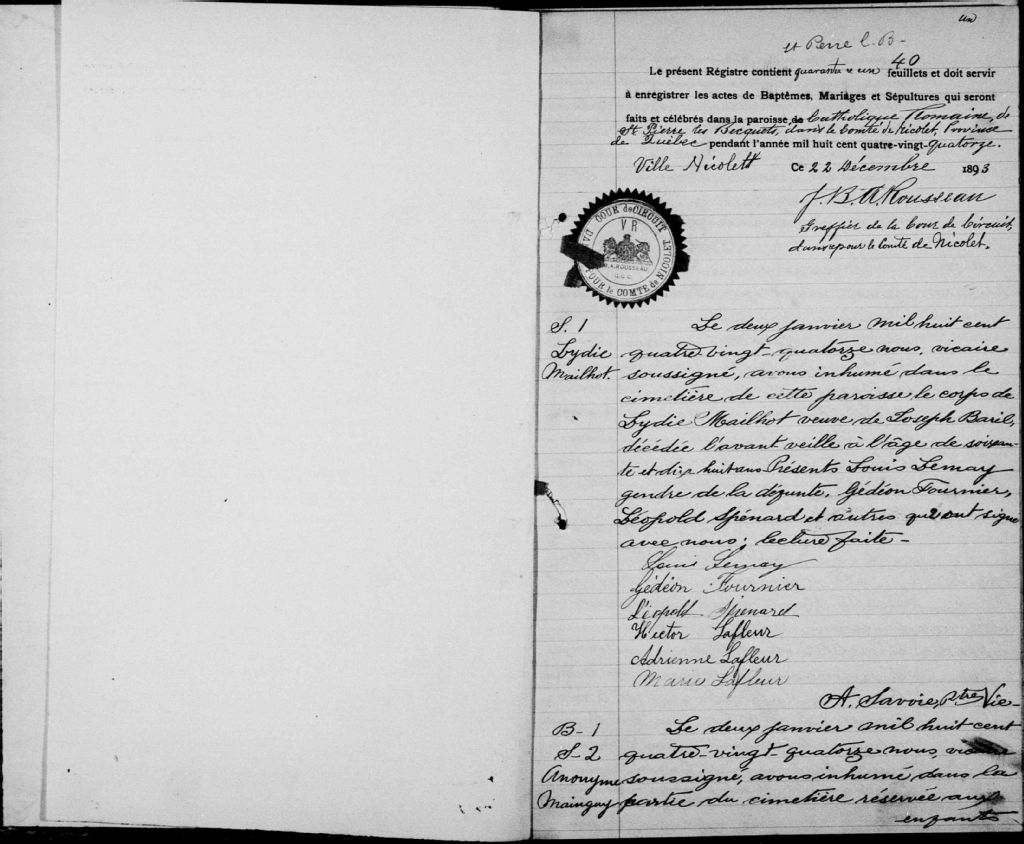 un
St Pierre l. B-
40
Le présent Régistre contient quarante & un feuillets et doit servir
à enregistrer les actes de Baptêmes, Mariages et Sépultures qui seront
faits et célébrés dans la paroisse de Catholique Romaine, de
St Pierre les Becquets, dans le Comté de Nicolet, Province
de Québec pendant l'année mil huit cent quatre-vingt-quatorze.
Ville Nicolet Ce 22 Décembre 1893
J. B. A Rousseau
Greffier de la Cour de Circuit,
dans & pour le Comté de Nicolet.
COUR de CIRCUIT
DA
V R
A. ROUSSEAU
G.C.C.
POUR le COMTE de NICOLET
S. 1
Lydie
Mailhot.
Le deux janvier mil huit cent
quatre-vingt-quatorze nous, vicaire
soussigné, avons inhumé dans le
cimetière de cette paroisse le corps de
Lydie Mailhot veuve de Joseph Baril,
décédée l'avant veille à l'âge de soixan-
te et dix huit ans Présents Louis Lemay
gendre de la défunte, Gédéon Fournier,
Léopold Spénard et autres qui ont signé
avec nous; lecture faite-
Louis Lemay
Gédéon Fournier
Léopold Spénard
Hector Lafleur
Adrienne Lafleur
Marie Lafleur
A. Savoie, Ptre Vic-
B-1
S-2
Anonyme
Mainguy
Le deux janvier mil huit cent
quatre-vingt-quatorze nous, vicaire
soussigné, avons inhumé dans la
partie du cimetière réservée aux
enfants